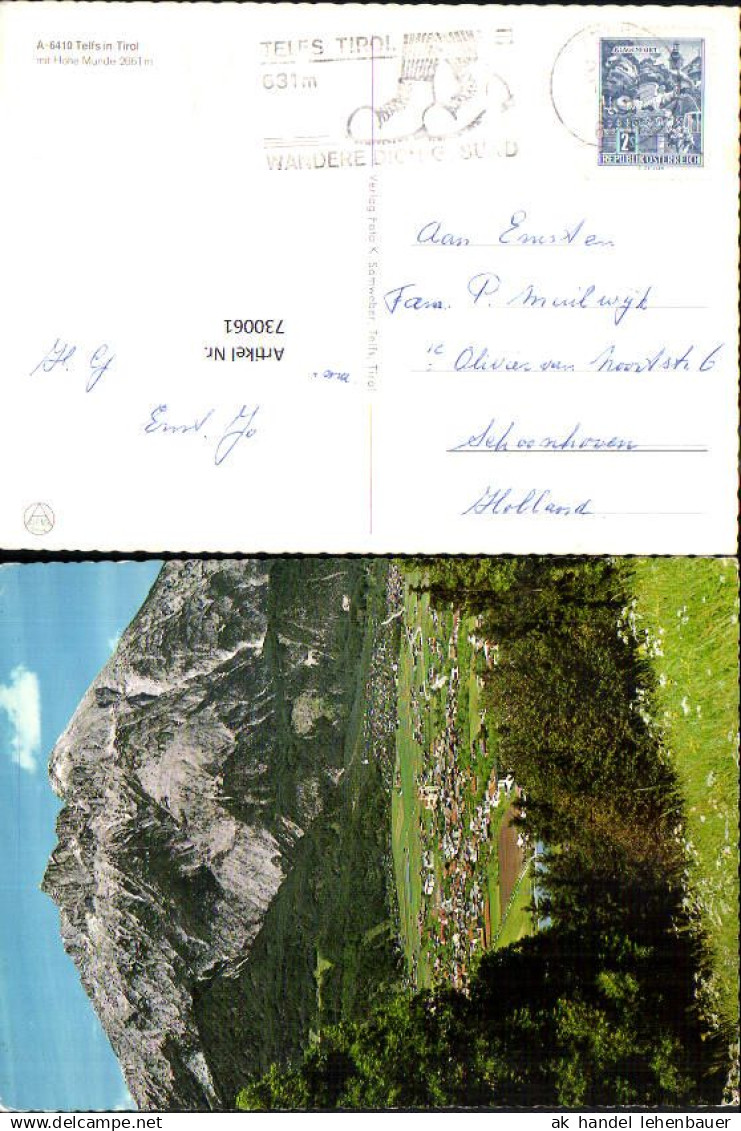 A-6410 Telfs in Tirol
mit Hohe Munde 2661 m
TELFS TIROL
631m
WANDERE DICH GESUND
KLAGENFURT
2S
REPUBLIK ÖSTERREICH
Verlag Foto K. Somweber, Telfs, Tirol
Aan Ernst en
Fam. P. Muilwijk
Olivier van Noortstr. 6
Schoonhoven
Holland
Artikel Nr.
730061
H. G
Ernst. Jo
ak handel lehenbauer